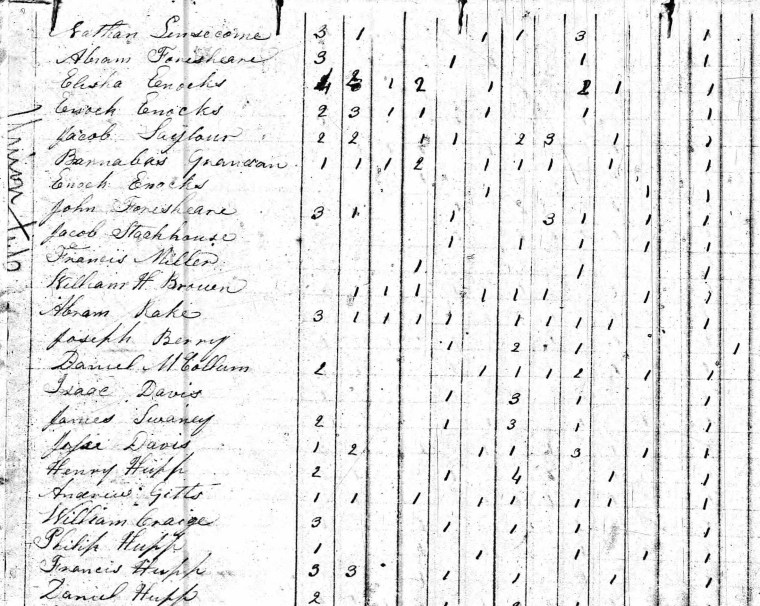 Nathan Linsecome 3 1 1 1 3 1
Abram Foresheare 3 1 1 1
Elisha Enochs 4 2 1 2 1 2 1 1
Enoch Enocks 2 3 1 1 1 1 1
Jacob 2 2 1 1 2 3 1 1
Barnabas 1 1 1 2 1 1 1 1 1
Enoch Enocks 1 1 1
John Foresheare 3 1 1 3 1 1 1
Jacob Stackhouse 1 1 1 1 1
Francis Miller 1 1 1
William H Brown 1 1 1 1 1 1 1 1
Abram Rake 3 1 1 1 1 1 1 1 1 1
Joseph Berry 1 2 1 1
Daniel McCollum 2 1 1 1 2 1 1
Isaac Davis 1 3 1 1
James Swaney 2 1 3 1 1
Davis 1 2 1 1 3 1 1
Henry Hupp 2 1 4 1 1
Andrew Gitts 1 1 1 1 1 1 1 1
William Craige 3 1 1 1 1
Philip Hupp 1 1 1 1 1
Francis Hupp 3 3 1 1 1 1
Daniel Hupp 2
Union